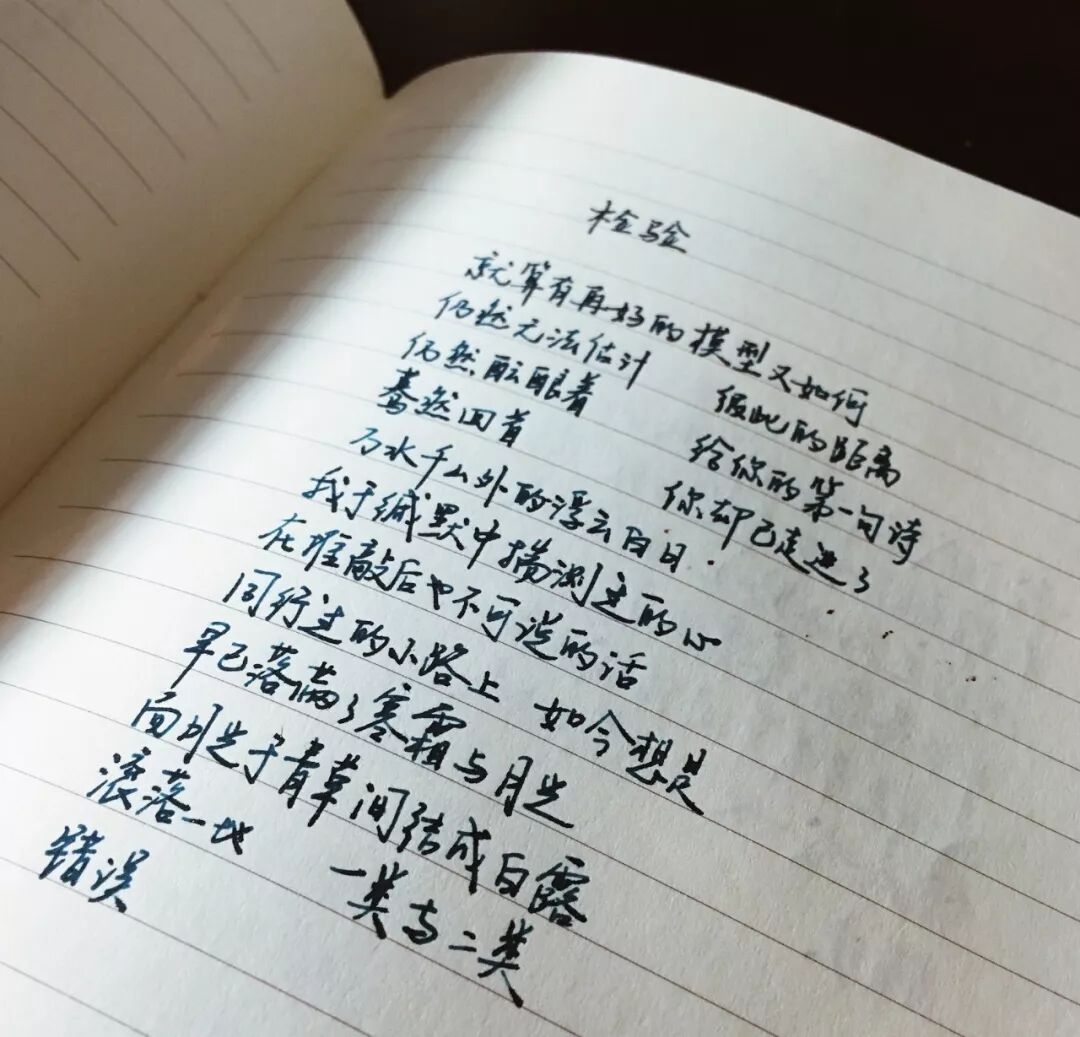 检验
就算有再好的模型又如何
仍然无法估计 彼此的距离
仍然酝酿着 给你的第一句诗
蓦然回首 你却已走进了
万水千山外的浮云白日
我于缄默中揣测过的心
在推敲后也不可说的话
同行过的小路上 如今想是
早已落满了寒霜与月光
而月光于青草间结成白露
滚落一地 一类与二类
错误